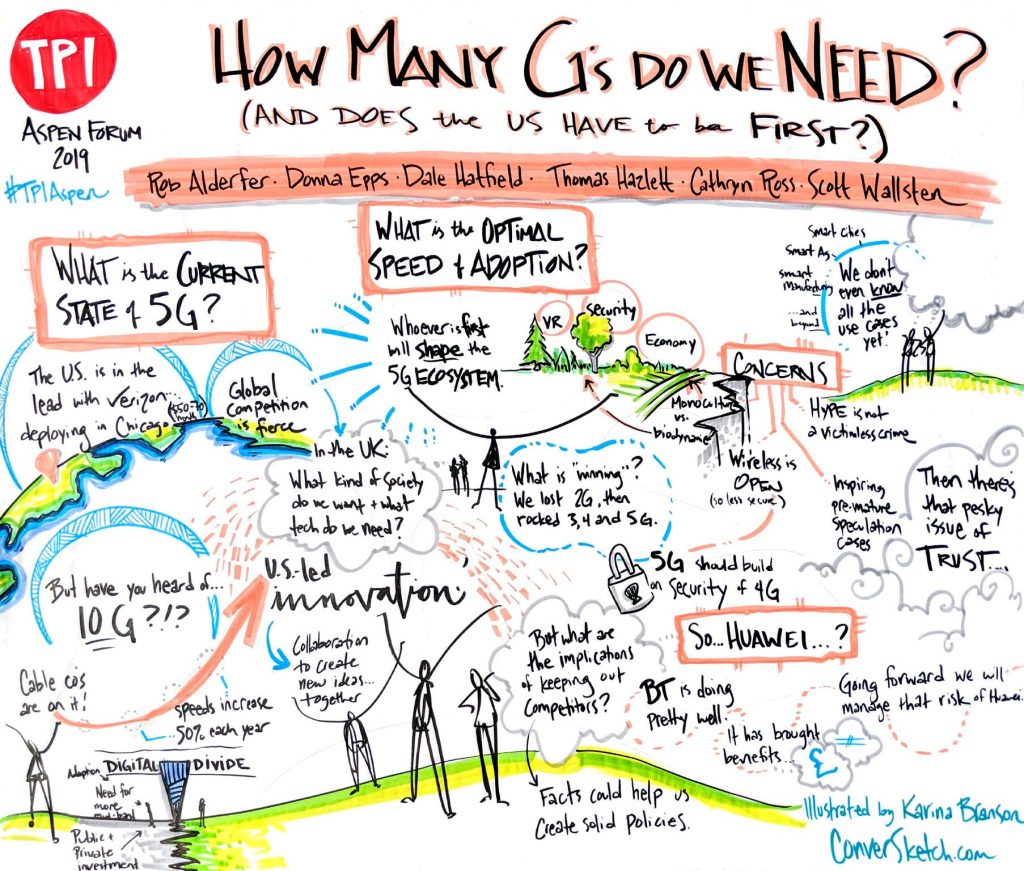 TPI
ASPEN FORUM
2019
#TPIAspen
HOW MANY G's DO WE NEED?
(AND DOES the US HAVE to be FIRST?)
Rob Alderfer · Donna Epps · Dale Hatfield · Thomas Hazlett · Cathryn Ross · Scott Wallsten
WHAT is the CURRENT
STATE of 5G?
The U.S. is in the
lead with verizon...
deploying in Chicago
Global
competition
is fierce
But have you heard of...
10 G?!?
Cable cos
are on it!
speeds increase
50% each year
Adoption
DIGITAL DIVIDE
Need for
more
mid-band
Public +
Private
investment
WHAT is the OPTIMAL
SPEED & ADOPTION?
Whoever is first
will shape the
5G ECOSYSTEM.
VR
Security
Economy
Monoculture
vs.
biodynamic
In the UK:
What kind of society
do we want + what
tech do we need?
What is "winning"?
We lost 2G, then
rocked 3, 4 and 5G.
U.S.-led
innovation
Collaboration
to create
new ideas...
together
Smart Cities
Smart Ag
smart
manufacturing
...and
beyond
We don't
even know
all the
use cases
yet!
CONCERNS
HYPE is not
a victimless crime
Wireless is
OPEN
(so less secure)
Inspiring
pre-mature
speculation
cases
Then there's
that pesky
issue of
TRUST....
5G should build
on security of 4G
But what are
the implications
of keeping out
competitors?
Facts could help us
Create solid policies.
SO...HUAWEI...?
BT is doing
pretty well.
It has brought
benefits...
£
Going forward we will
manage that risk of Huawei.
Illustrated by Karina Branson
ConverSketch.com